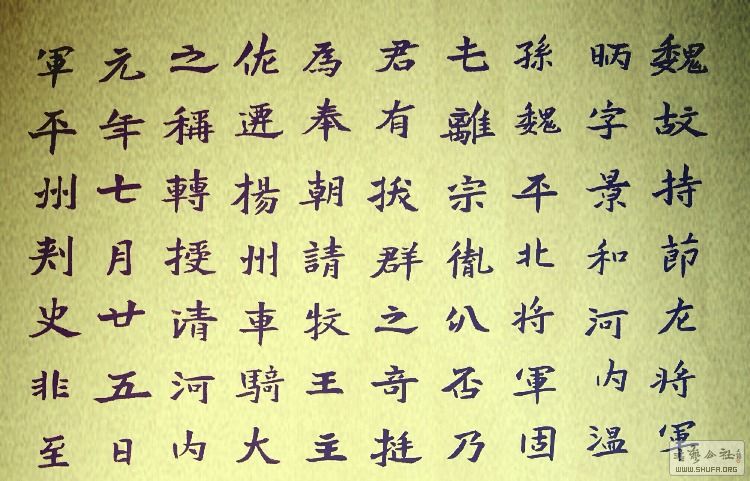 魏故持節左將軍
昞字景和河内温
孫魏平北將軍固
乇離宗胤公否乃
君有拔群之奇挺
為奉朝請牧王主
佐遷楊州車騎大
之稱轉授清河内
元年七月廿五日
軍平州刾史非至
WWW.SHUFA.ORG